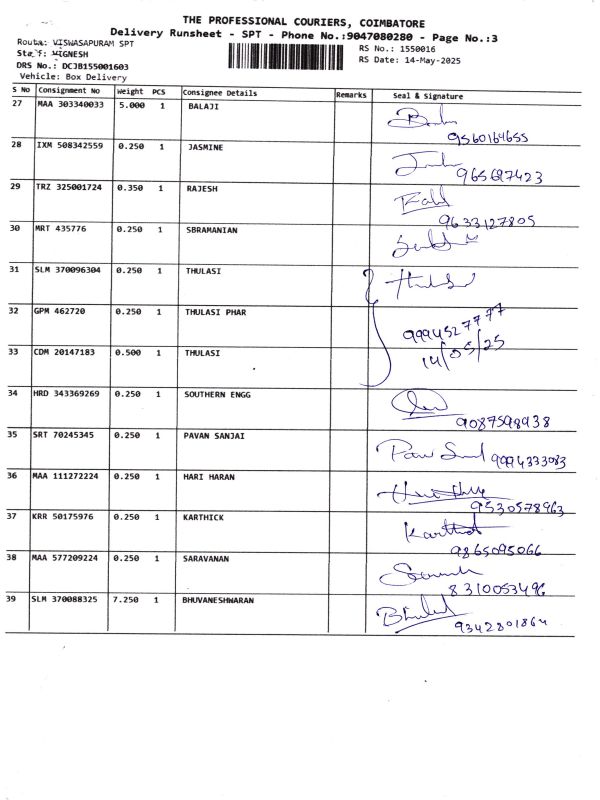 THE PROFESSIONAL COURIERS, COIMBATORE
Delivery Runsheet - SPT - Phone No.:9047080280 - Page No.:3
Route: VISWASAPURAM SPT
RS No.: 1550016
Staff: VIGNESH
RS Date: 14-May-2025
DRS No.: DCJB155001603
Vehicle: Box Delivery
S No Consignment No Weight PCS Consignee Details Remarks Seal & Signature
27 MAA 303340033 5.000 1 BALAJI
9560164655
28 IXM 508342559 0.250 1 JASMINE
965697423
29 TRZ 325001724 0.350 1 RAJESH
9633127805
30 MRT 435776 0.250 1 SBRAMANIAN
31 SLM 370096304 0.250 1 THULASI
32 GPM 462720 0.250 1 THULASI PHAR
9994527777
14/05/25
33 CDM 20147183 0.500 1 THULASI
34 HRD 343369269 0.250 1 SOUTHERN ENGG
9087598938
35 SRT 70245345 0.250 1 PAVAN SANJAI
9994333083
36 MAA 111272224 0.250 1 HARI HARAN
9530578963
37 KRR 50175976 0.250 1 KARTHICK
Karthick
9865095066
38 MAA 577209224 0.250 1 SARAVANAN
8310053496
39 SLM 370088325 7.250 1 BHUVANESHWARAN
9342801864